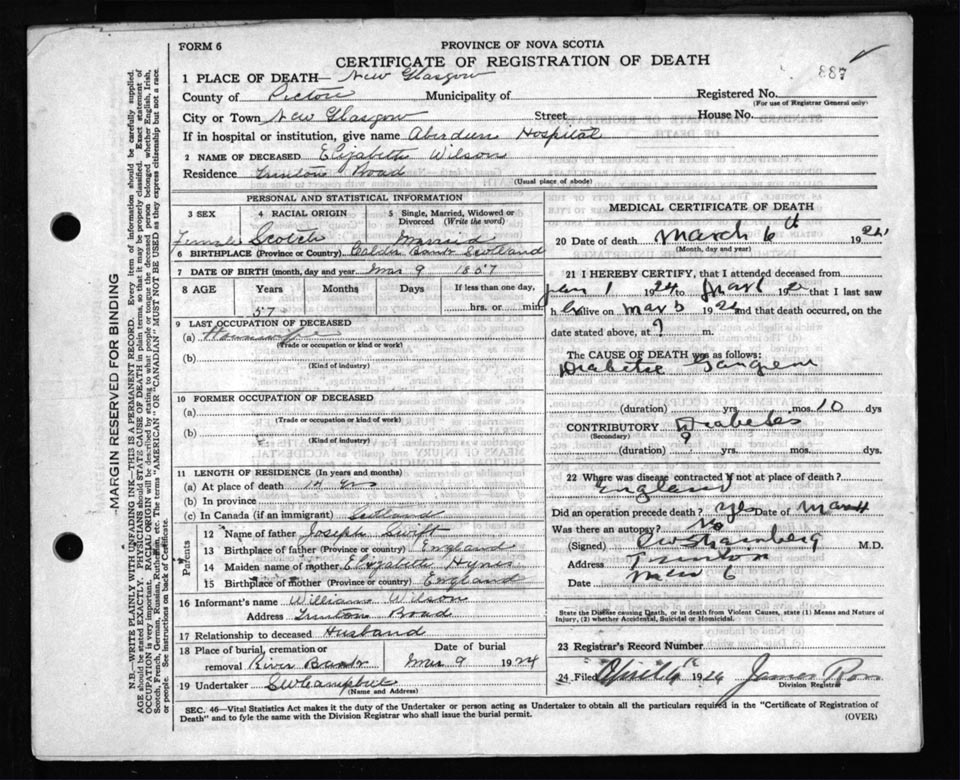 FORM 6
PROVINCE OF NOVA SCOTIA
CERTIFICATE OF REGISTRATION OF DEATH
887
1 PLACE OF DEATH— New Glasgow
County of Pictou Municipality of Registered No.
(For use of Registrar General only)
City or Town New Glasgow Street House No.
If in hospital or institution, give name Aberdeen Hospital
2 NAME OF DECEASED Elizabeth Wilson
Residence Trenton Road
(Usual place of abode)
PERSONAL AND STATISTICAL INFORMATION
3 SEX 4 RACIAL ORIGIN 5 Single, Married, Widowed or Divorced (Write the word)
Female Scotch Married
6 BIRTHPLACE (Province or Country) Scotland
7 DATE OF BIRTH (month, day and year) Mar 9 1857
8 AGE Years Months Days If less than one day,
57 hrs. or min.
9 LAST OCCUPATION OF DECEASED
(a) Housewife
(Trade or occupation or kind or work)
(b)
(Kind of industry)
10 FORMER OCCUPATION OF DECEASED
(a)
(Trade or occupation or kind of work)
(b)
(Kind of industry)
11 LENGTH OF RESIDENCE (In years and months)
(a) At place of death yrs
(b) In province
(c) In Canada (if an immigrant) Scotland
Parents
12 Name of father Joseph Swift
13 Birthplace of father (Province or country) England
14 Maiden name of mother Elizabeth Hynes
15 Birthplace of mother (Province or country) England
16 Informant's name William Wilson
Address Trenton Road
17 Relationship to deceased Husband
18 Place of burial, cremation or Date of burial
removal River Bank Mar 9 1924
19 Undertaker SW Campbell
(Name and Address)
MEDICAL CERTIFICATE OF DEATH
20 Date of death March 6th 192
(Month, day and year)
21 I HEREBY CERTIFY, that I attended deceased from
Jan 1 1924 to Mar 6 192 that I last saw
h alive on Mar 5 192 and that death occurred, on the
date stated above, at ? m.
The CAUSE OF DEATH was as follows:
Diabetic Gangrene
(duration) yrs. mos. 10 dys
CONTRIBUTORY Diabetes
(Secondary) ?
(duration) yrs. mos. dys.
22 Where was disease contracted if not at place of death?
England
Did an operation precede death? yes Date of March
Was there an autopsy? No
(Signed) M.D.
Address Trenton
Date Mar 6
State the Disease causing Death, or in death from Violent Causes, state (1) Means and Nature of Injury, (2) whether Accidental, Suicidal or Homicidal.
23 Registrar's Record Number
24 Filed April 1924 James Ross
Division Registrar
SEC. 46—Vital Statistics Act makes it the duty of the Undertaker or person acting as Undertaker to obtain all the particulars required in the "Certificate of Registration of
Death" and to fyle the same with the Division Registrar who shall issue the burial permit.
(OVER)
—MARGIN RESERVED FOR BINDING
N.B.—WRITE PLAINLY WITH UNFADING INK—THIS IS A PERMANENT RECORD. Every item of information should be carefully supplied.
AGE should be stated EXACTLY. PHYSICIANS should STATE CAUSE OF DEATH in plain terms, so that it may be properly classified. Exact statement of
OCCUPATION is very important. RACIAL ORIGIN will be described by stating to what people or tongue the deceased person belonged whether English, Irish,
Scotch, French, German, Russian, Ruthenian, etc. The terms "AMERICAN" or "CANADIAN" MUST NOT BE USED as they express citizenship but not a race
or people. See instructions on back of Certificate.